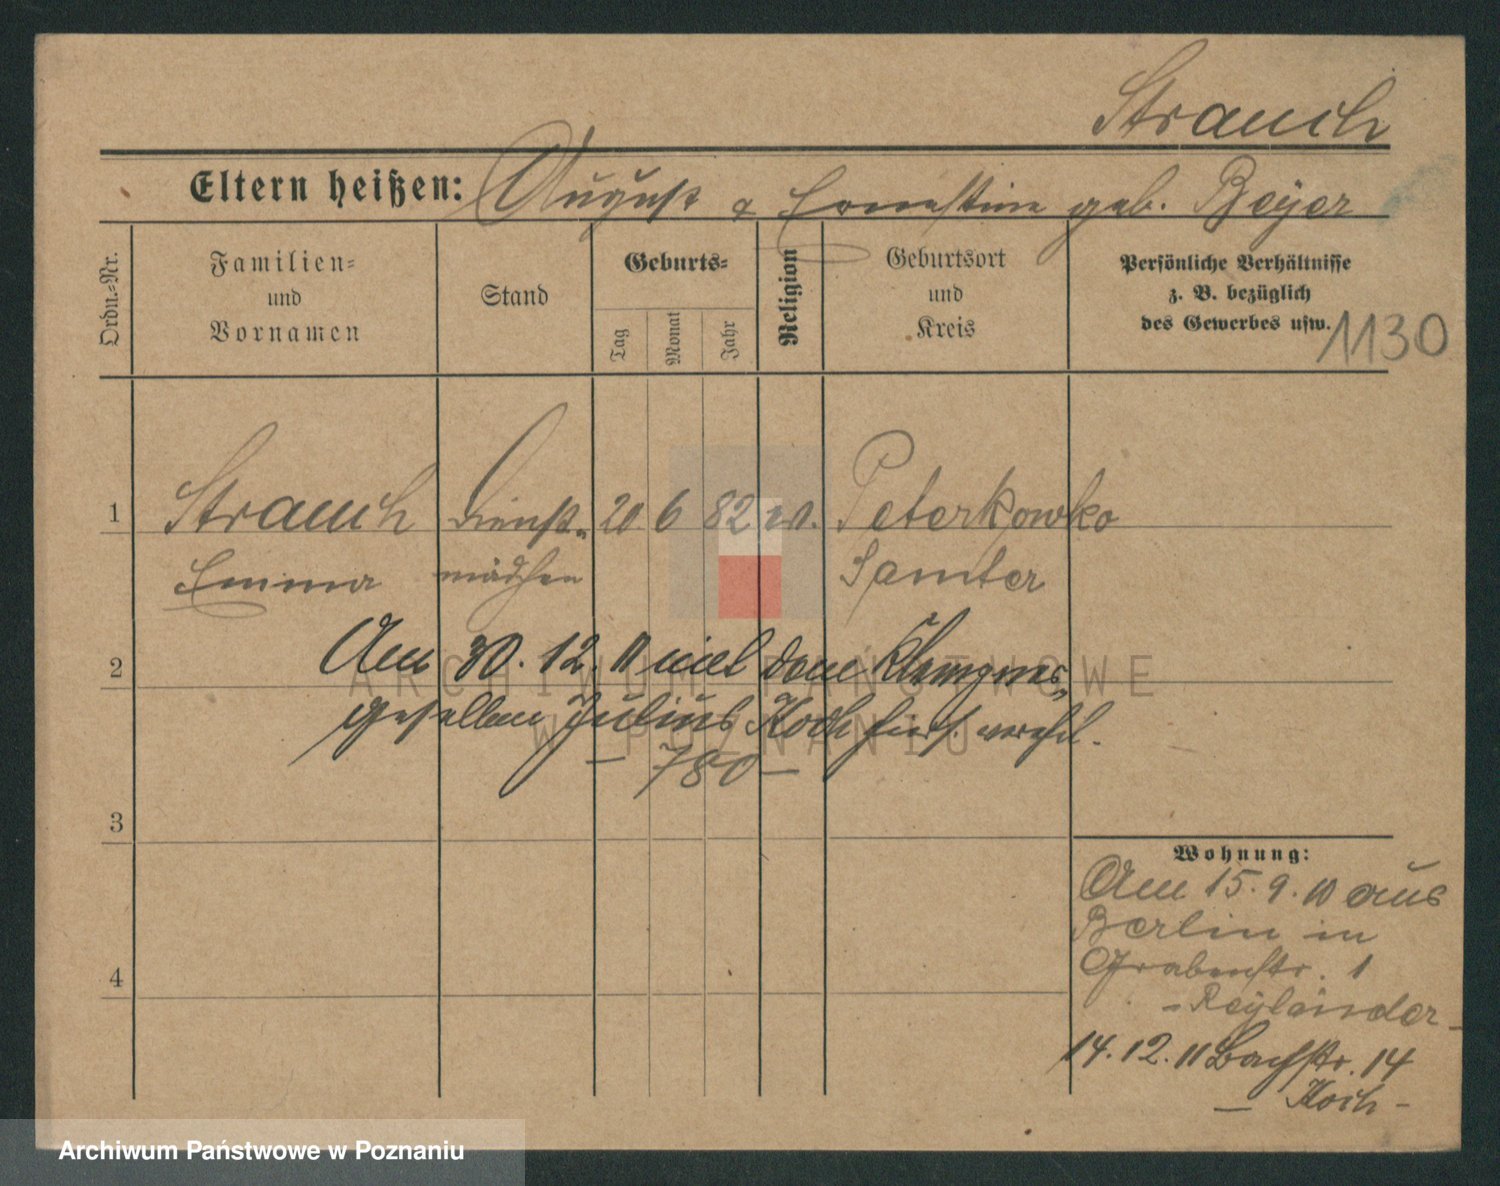 Strauch
Eltern heißen: August & Ernestine geb. Beyer
Ordn.-Nr.
Familien-
und
Vornamen
Stand
Geburts-
Tag
Monat
Jahr
Religion
Geburtsort
und
Kreis
Persönliche Verhältnisse
z. B. bezüglich
des Gewerbes usw.
1130
1 Strauch Dienst- 20 6 82 ev. Peterkowko
Emma mädchen Samter
2 Am 30. 12. 11 mit dem Klempner-
gesellen Julius Koch hiers. verehel.
– 780 –
3
4
Wohnung:
Am 15. 9. 10 aus
Berlin in
Grabenstr. 1
- Reyländer -
14. 12. 11 Bachstr. 14
– Koch –
ARCHIWUM PAŃSTWOWE
W POZNANIU
Archiwum Państwowe w Poznaniu